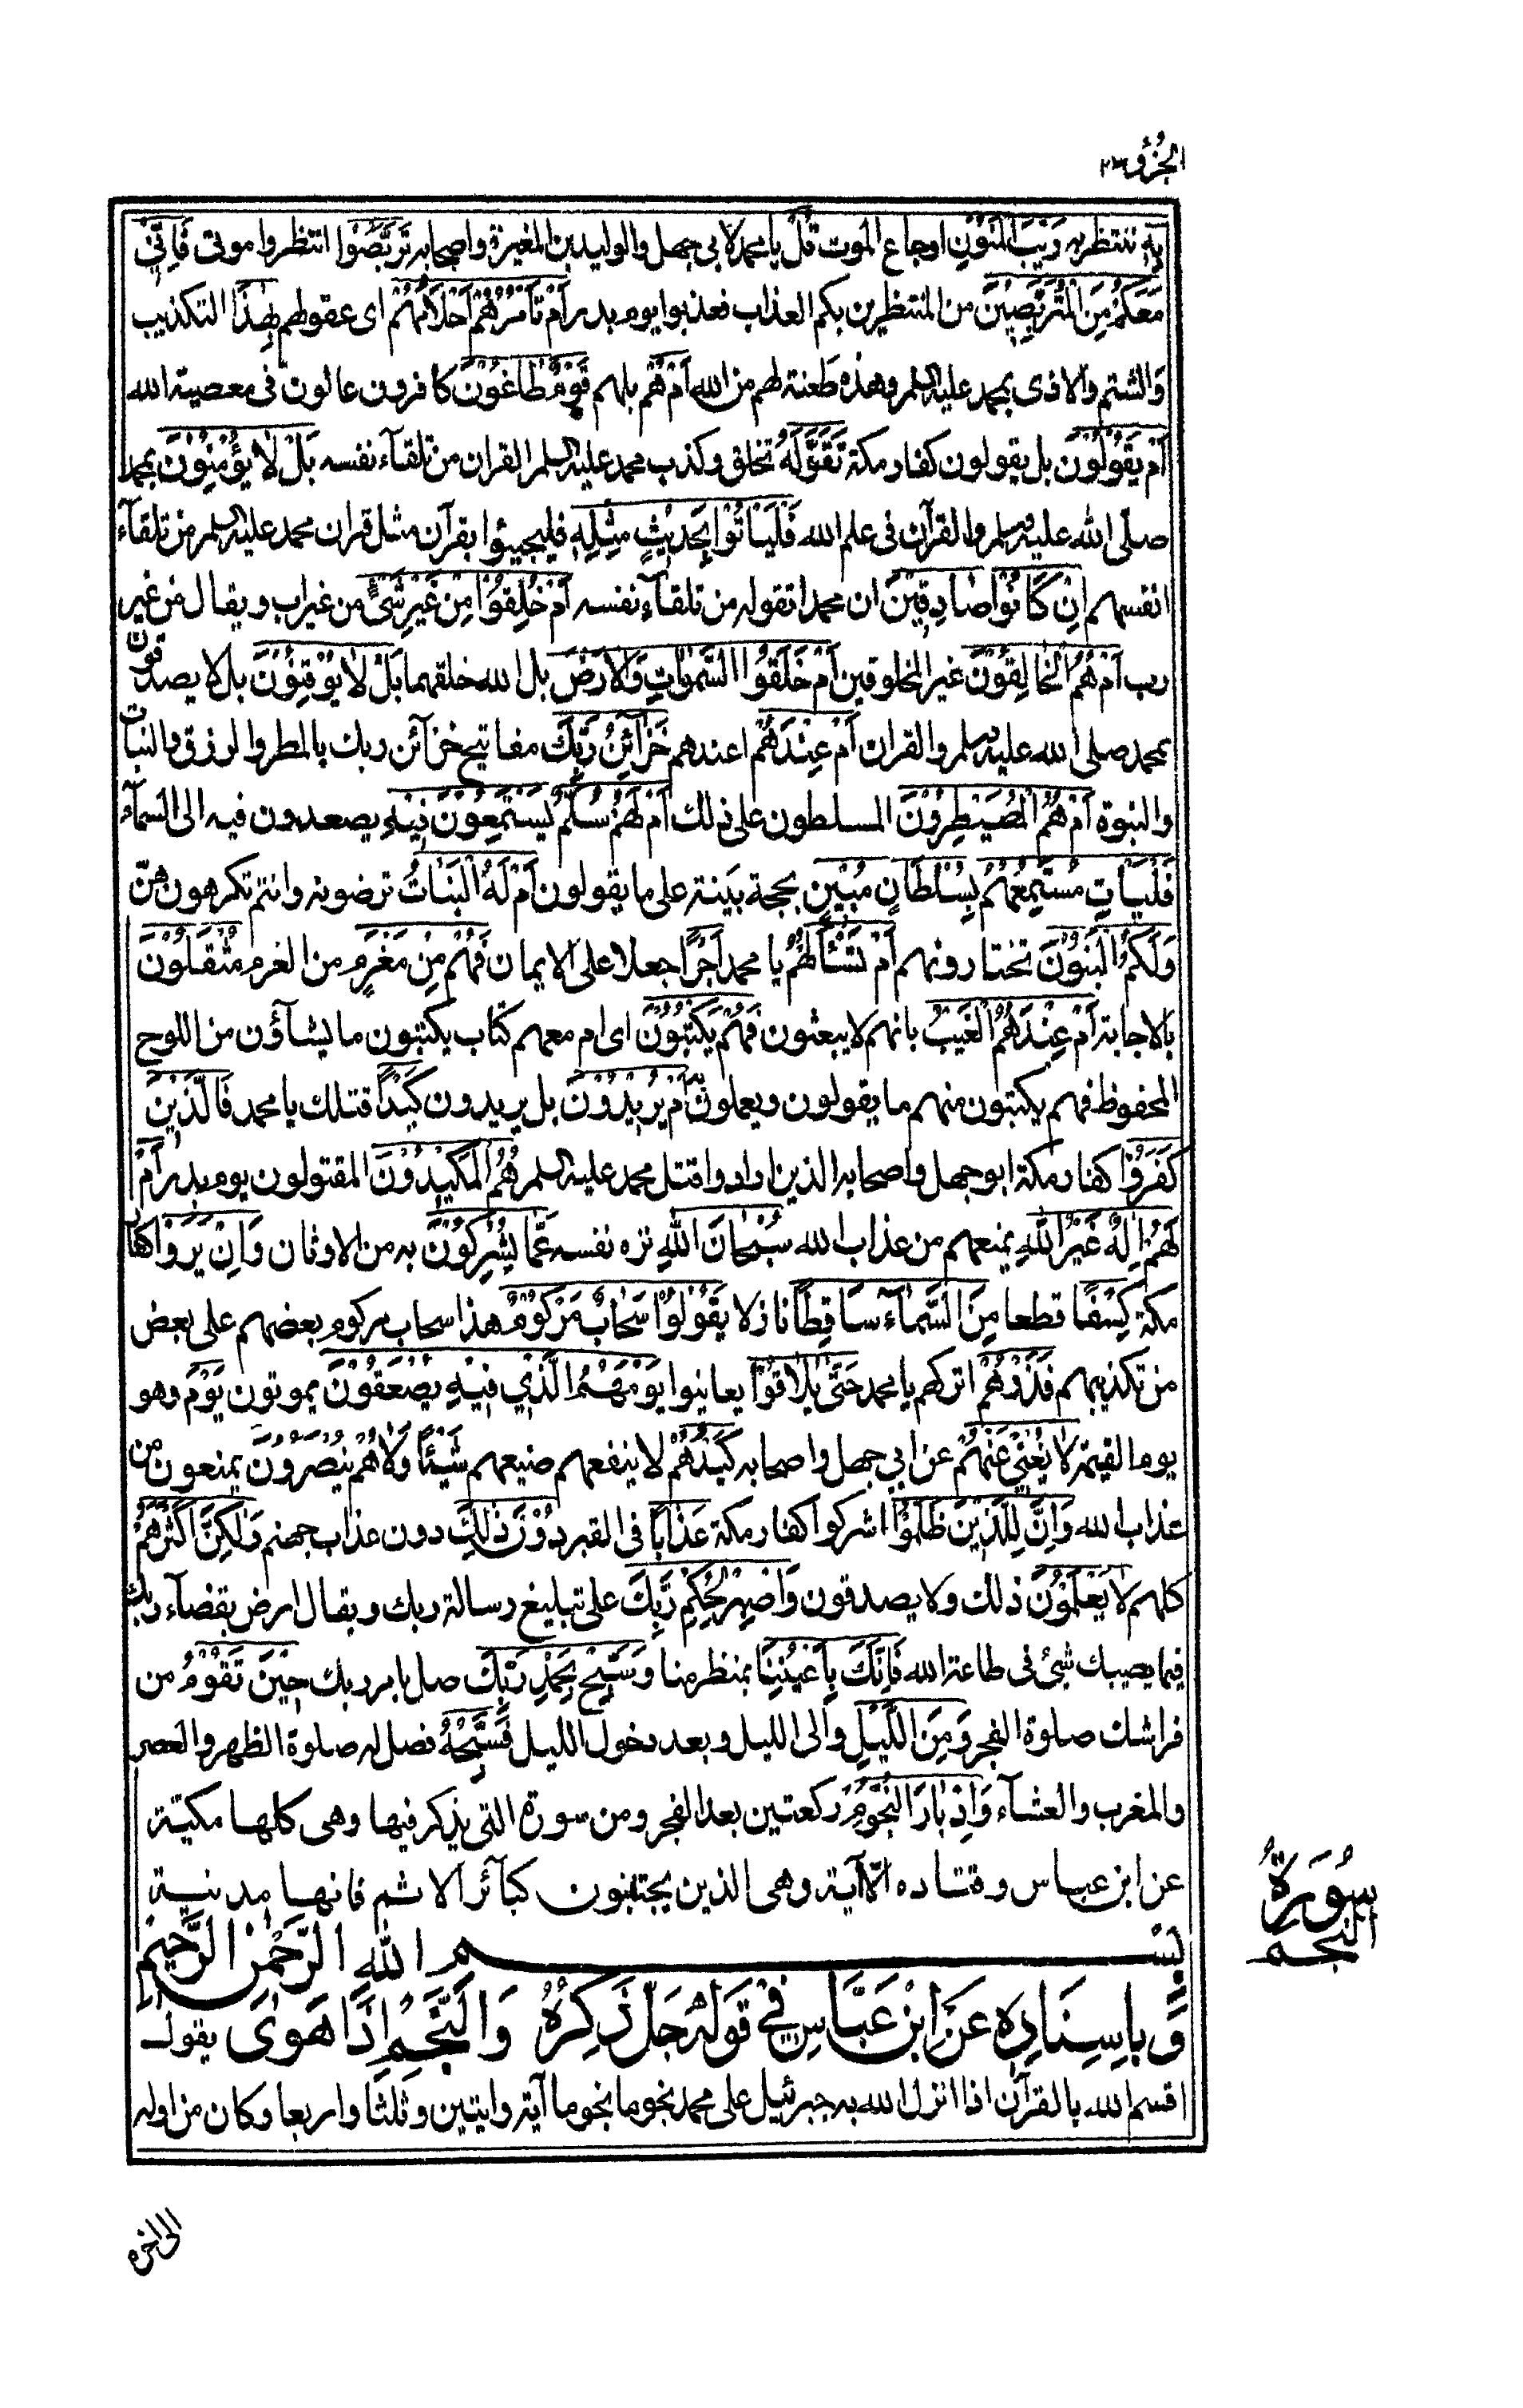 الجزؤ ٢٧
بِهٖ ننتظر به رَيْبَ الْمَنُوْنِ اوجاع الموت قُلْ يا محمد لابى جهل والوليد بن المغيرة واصحابه تَرَبَّصُوْا انتظروا موتى فَاِنِّىْ
مَعَكُمْ مِنَ الْمُتَرَبِّصِيْنَ من المنتظرين بكم العذاب فعذبوا يوم بدر اَمْ تَأْمُرُهُمْ اَحْلَامُهُمْ اى عقولهم بِهٰذَا التكذيب
والشتم والاذى بمحمد عليه السلم وهذه طعنة لهم من الله اَمْ هُمْ بل هم قَوْمٌ طَاغُوْنَ كافرون عالون فى معصية الله
اَمْ يَقُوْلُوْنَ بل يقولون كفار مكة تَقَوَّلَهٗ تخلق وكذب محمد عليه السلم القران من تلقآء نفسه بَلْ لَا يُؤْمِنُوْنَ بمحمد
صلّى الله عليه وسلم والقرآن فى علم الله فَلْيَاْتُوْا بِحَدِيْثٍ مِّثْلِهٖ فليجيئوا بقرآن مثل قران محمد عليه السلم من تلقآء
انفسهم اِنْ كَانُوْا صَادِقِيْنَ ان محمدا تقوله من تلقآء نفسه اَمْ خُلِقُوْا مِنْ غَيْرِ شَىْءٍ من غير اب ويقال من غير
رب اَمْ هُمُ الْخَالِقُوْنَ غير المخلوقين اَمْ خَلَقُوا السَّمٰوَاتِ وَالْاَرْضَ بل الله خلقهما بَلْ لَا يُوْقِنُوْنَ بل لا يصدقون
بمحمد صلى الله عليه وسلم والقران اَمْ عِنْدَهُمْ اعندهم خَزَآئِنُ رَبِّكَ مفاتيح خزآئن ربك بالمطر والرزق والنبات
والنبوة اَمْ هُمُ الْمُصَيْطِرُوْنَ المسلطون على ذلك اَمْ لَهُمْ سُلَّمٌ يَّسْتَمِعُوْنَ فِيْهِ يصعدون فيه الى السمآء
فَلْيَاْتِ مُسْتَمِعُهُمْ بِسُلْطَانٍ مُّبِيْنٍ بحجة بينة على ما يقولون اَمْ لَهُ الْبَنَاتُ ترضونه وانتم تكرهون هنّ
وَلَكُمُ الْبَنُوْنَ تختارونهم اَمْ تَسْئَالُهُمْ يا محمد اَجْرًا جعلا على الايمان فَهُمْ مِنْ مَغْرَمٍ من الغرم مُثْقَلُوْنَ
بالاجابة اَمْ عِنْدَهُمُ الْغَيْبُ بانهم لا يبعثون فَهُمْ يَكْتُبُوْنَ اى ام معهم كتاب يكتبون ما يشآؤن من اللوح
المحفوظ فهم يكتبون منهم ما يقولون ويعملون اَمْ يُرِيْدُوْنَ بل يريدون كَيْدًا قتلك يا محمد فَالَّذِيْنَ
كَفَرُوْا كفار مكة ابو جهل واصحابه الذين ارادوا قتل محمد عليه السلم هُمُ الْمَكِيْدُوْنَ المقتولون يوم بدر اَمْ
لَهُمْ اِلٰهٌ غَيْرُ اللّٰهِ يمنعهم من عذاب الله سُبْحَانَ اللّٰهِ نزه نفسه عَمَّا يُشْرِكُوْنَ به من الاوثان وَاِنْ يَرَوْا كفار
مكة كِسْفًا قطعا مِنَ السَّمَآءِ سَاقِطًا نازلا يَقُوْلُوْا سَحَابٌ مَرْكُوْمٌ هذا سحاب مركوم بعضهم على بعض
من تكذيبهم فَذَرْهُمْ اتركهم يا محمد حَتّٰى يُلَاقُوْا يعاينوا يَوْمَهُمُ الَّذِىْ فِيْهِ يُصْعَقُوْنَ يموتون يَوْمَ وهو
يوم القيمة لَا يُغْنِىْ عَنْهُمْ عن ابى جهل واصحابه كَيْدُهُمْ لا ينفعهم صنيعهم شَيْئًا وَلَا هُمْ يُنْصَرُوْنَ يمنعون من
عذاب الله وَاِنَّ لِلَّذِيْنَ ظَلَمُوْا اشركوا كفار مكة عَذَابًا فى القبر دُوْنَ ذٰلِكَ دون عذاب جهنم وَلٰكِنَّ اَكْثَرَهُمْ
كلهم لَا يَعْلَمُوْنَ ذلك ولا يصدقون وَاصْبِرْ لِحُكْمِ رَبِّكَ على تبليغ رسالة ربك ويقال ارض بقضآء ربك
فيما يصيبك شئ فى طاعة الله فَاِنَّكَ بِاَعْيُنِنَا بمنظر منا وَسَبِّحْ بِحَمْدِ رَبِّكَ صل بامر ربك حِيْنَ تَقُوْمُ من
فراشك صلوة الفجر وَمِنَ اللَّيْلِ والى الليل وبعد دخول الليل فَسَبِّحْهُ فصل له صلوة الظهر والعصر
والمغرب والعشآء وَاِدْبَارَ النُّجُوْمِ ركعتين بعد الفجر ومن سورة التى يذكر فيها وهى كلها مكيّة
عن ابن عباس وقتاده الّا آية وهى الذين يجتنبون كبآئر الاثم فانها مدنية
بِسْمِ اللّٰهِ الرَّحْمٰنِ الرَّحِيْمِ
سُورَةُ النجم
وَبِاِسْنَادِهٖ عَنِ ابْنِ عَبَّاسٍ فِىْ قَوْلِهٖ جَلَّ ذِكْرُهٗ وَالنَّجْمِ اِذَا هَوٰى يقول
اقسم الله بالقرآن اذا انزل الله به جبرئيل على محمد نجوما نجوما آية وايتين وثلثا واربعا وكان من اوله
الى اخره